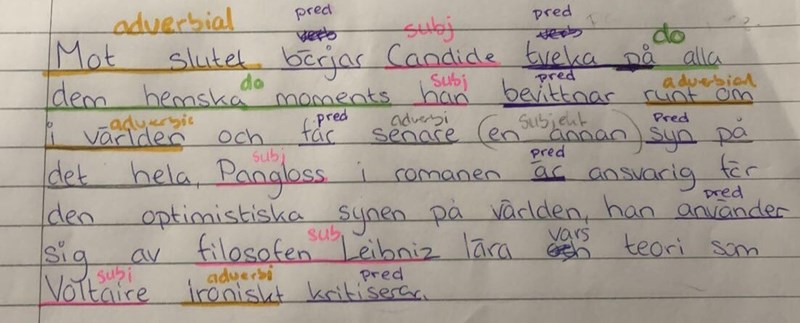 adverbial pred subj pred do
verb verb
Mot slutet börjar Candide tveka på alla
do subj pred adverbial
dem hemska moments han bevittnar runt om
adverbie pred adverbi subjekt Pred
i världen och får senare (en annan) syn på
subj pred
det hela, Pangloss i romanen är ansvarig för
pred
den optimistiska synen på världen, han använder
sub vars
sig av filosofen Leibniz lära och teori som
subj adverbi pred
Voltaire ironiskt kritiserar.